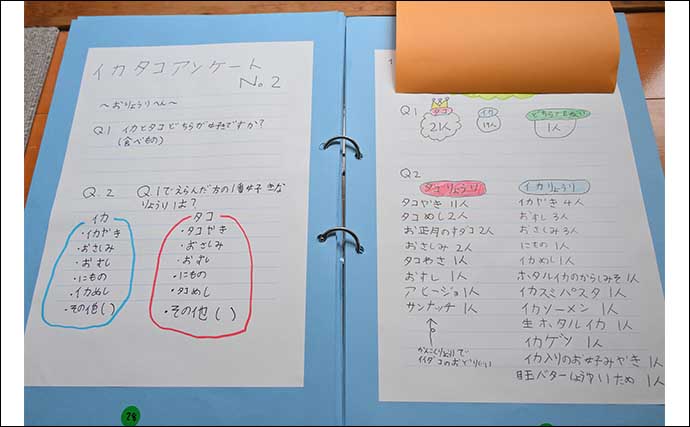 イカタコアンケート
No.2
〜おりょうりへん〜
Q1 イカとタコどちらが好きですか?
(食べもの)
Q.2 Q1でえらんだ方の1番好きな
りょうりは?
イカ
・イカやき
・おさしみ
・おすし
・にもの
・イカめし
・その他( )
タコ
・タコやき
・おさしみ
・おすし
・にもの
・タコめし
・その他( )
28
Q1
タコ
21人
イカ
19人
どちらでもない
1人
Q2
タコりょうり
タコやき 11人
タコめし 2人
お正月のすダコ 2人
おさしみ 2人
タコやき 1人
おすし 1人
アヒージョ 1人
サンナッチ 1人
かんこくりょうりで
イイダコのおどりぐい
イカりょうり
イカやき 4人
おすし 3人
おさしみ 3人
にもの 1人
イカめし 1人
ホタルイカのからしみそ 1人
イカスミパスタ 1人
イカソーメン 1人
生ホタルイカ 1人
イカゲソ 1人
イカ入りのお好みやき 1人
目玉バターしょうゆいため 1人